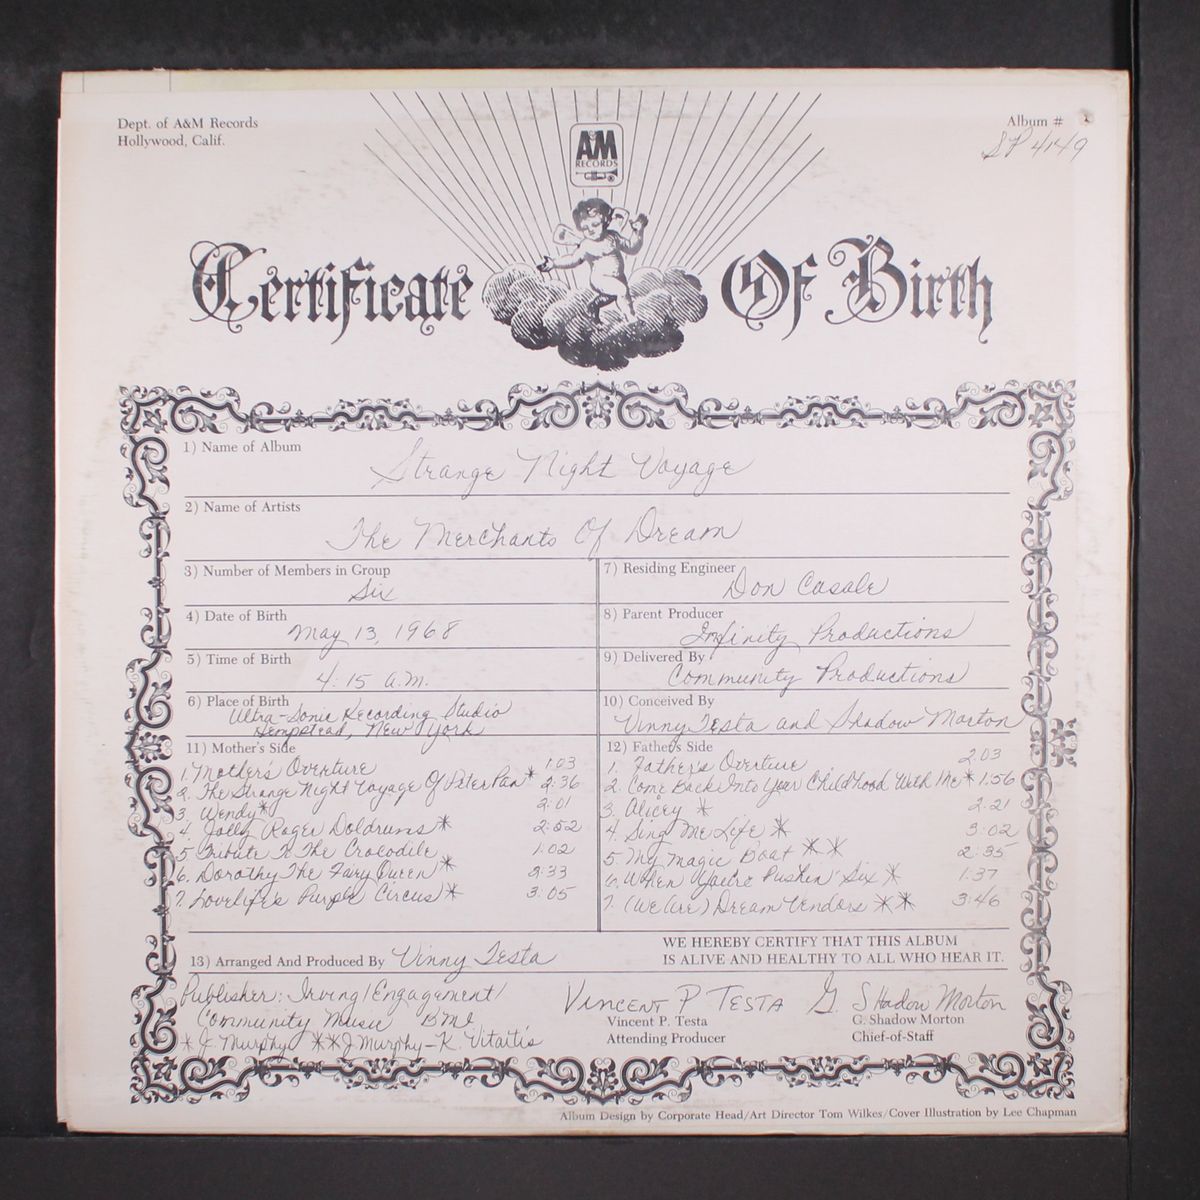 Dept. of A&M Records
Hollywood, Calif.
Album #
SP 4149
A&M
RECORDS
Certificate Of Birth
1) Name of Album
Strange Night Voyage
2) Name of Artists
The Merchants Of Dream
3) Number of Members in Group
Six
4) Date of Birth
May 13, 1968
5) Time of Birth
4:15 a.m.
6) Place of Birth
Ultra-Sonic Recording Studio
Hempstead, New York
7) Residing Engineer
Don Casale
8) Parent Producer
Infinity Productions
9) Delivered By
Community Productions
10) Conceived By
Vinny Testa and Shadow Morton
11) Mother's Side
1. Mother's Overture 1:03
2. The Strange Night Voyage Of Peter Pan* 2:36
3. Wendy* 2:01
4. Jolly Roger Doldrums* 2:52
5. Tribute To The Crocodile 1:02
6. Dorothy The Fairy Queen* 2:33
7. Lovelife's Purple Circus* 3:05
12) Father's Side
1. Father's Overture 2:03
2. Come Back Into Your Childhood With Me* 1:56
3. Alicey * 2:21
4. Sing Me Life * 3:02
5. My Magic Boat ** 2:35
6. When You're Pushin' Six * 1:37
7. (We Are) Dream Vendors ** 3:46
13) Arranged And Produced By Vinny Testa
WE HEREBY CERTIFY THAT THIS ALBUM
IS ALIVE AND HEALTHY TO ALL WHO HEAR IT.
Publisher: Irving/Engagement/
Community Music BMI
* J. Murphy **J Murphy-K. Vitaitis
Vincent P Testa
Vincent P. Testa
Attending Producer
G. Shadow Morton
G. Shadow Morton
Chief-of-Staff
Album Design by Corporate Head/Art Director Tom Wilkes/Cover Illustration by Lee Chapman